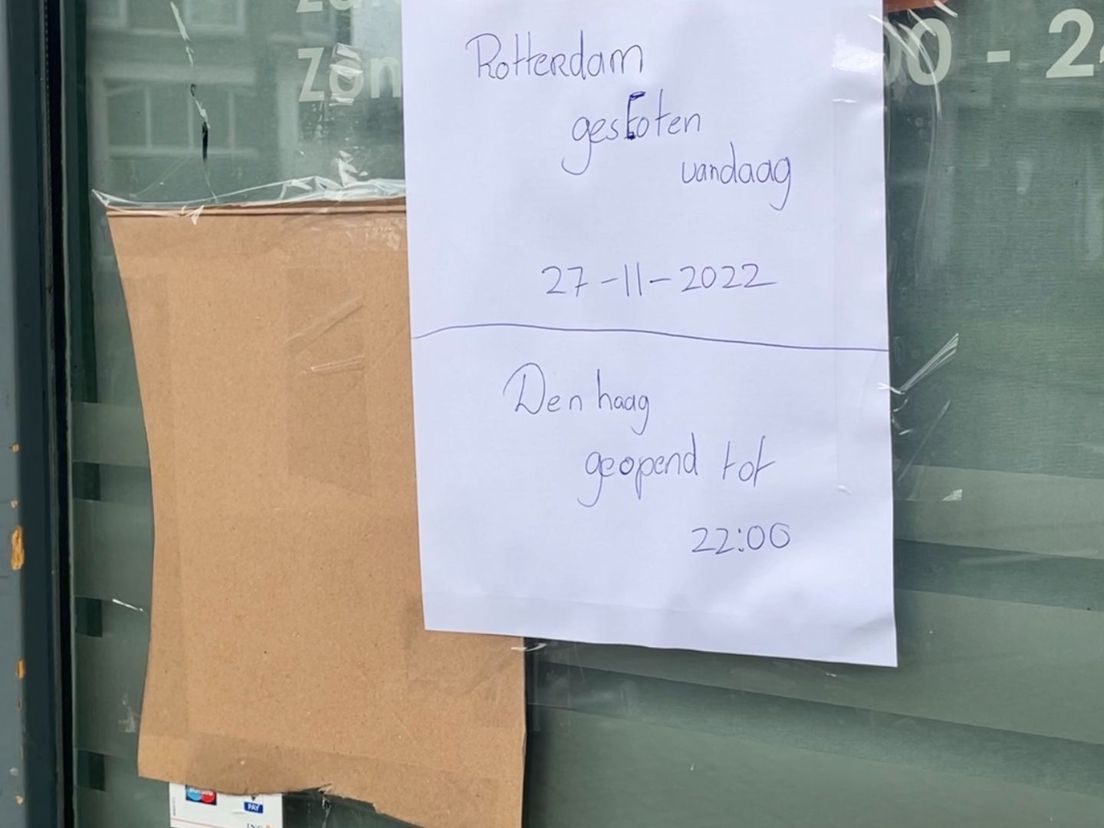 Zon
00 - 2
Rotterdam
gesloten
vandaag
27-11-2022
Den haag
geopend tot
22:00
PAY